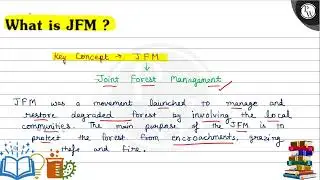 What is JFM ?
Key Concept → JFM
Joint Forest Management
JFM was a movement launched to manage and
restore degraded forest by involving the local
communities. The main purpose of the JFM is to
protect the forest from encroachments, grazing
theft and fire.